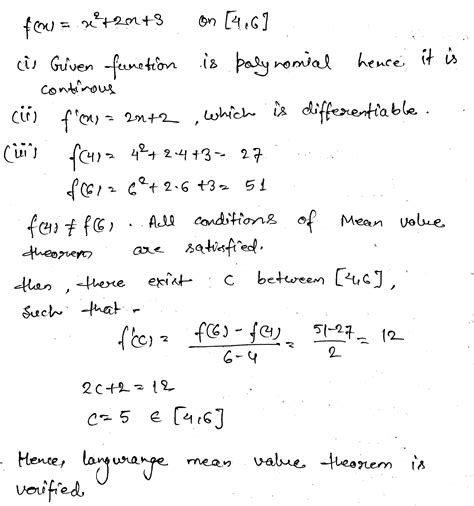 f(x) = x²+2x+3 on [4,6]
(i) Given function is polynomial hence it is
continous
(ii) f'(x) = 2x+2, which is differentiable.
(iii) f(4) = 4²+2·4+3 = 27
f(6) = 6²+2·6+3 = 51
f(4) ≠ f(6). All conditions of Mean value
theorem are satisfied.
then, there exist C between [4,6],
Such that -
f'(c) = f(6) - f(4) / 6-4 = 51-27 / 2 = 12
2c+2 = 12
c = 5 ∈ [4,6]
Hence, langurange mean value theorem is
verified